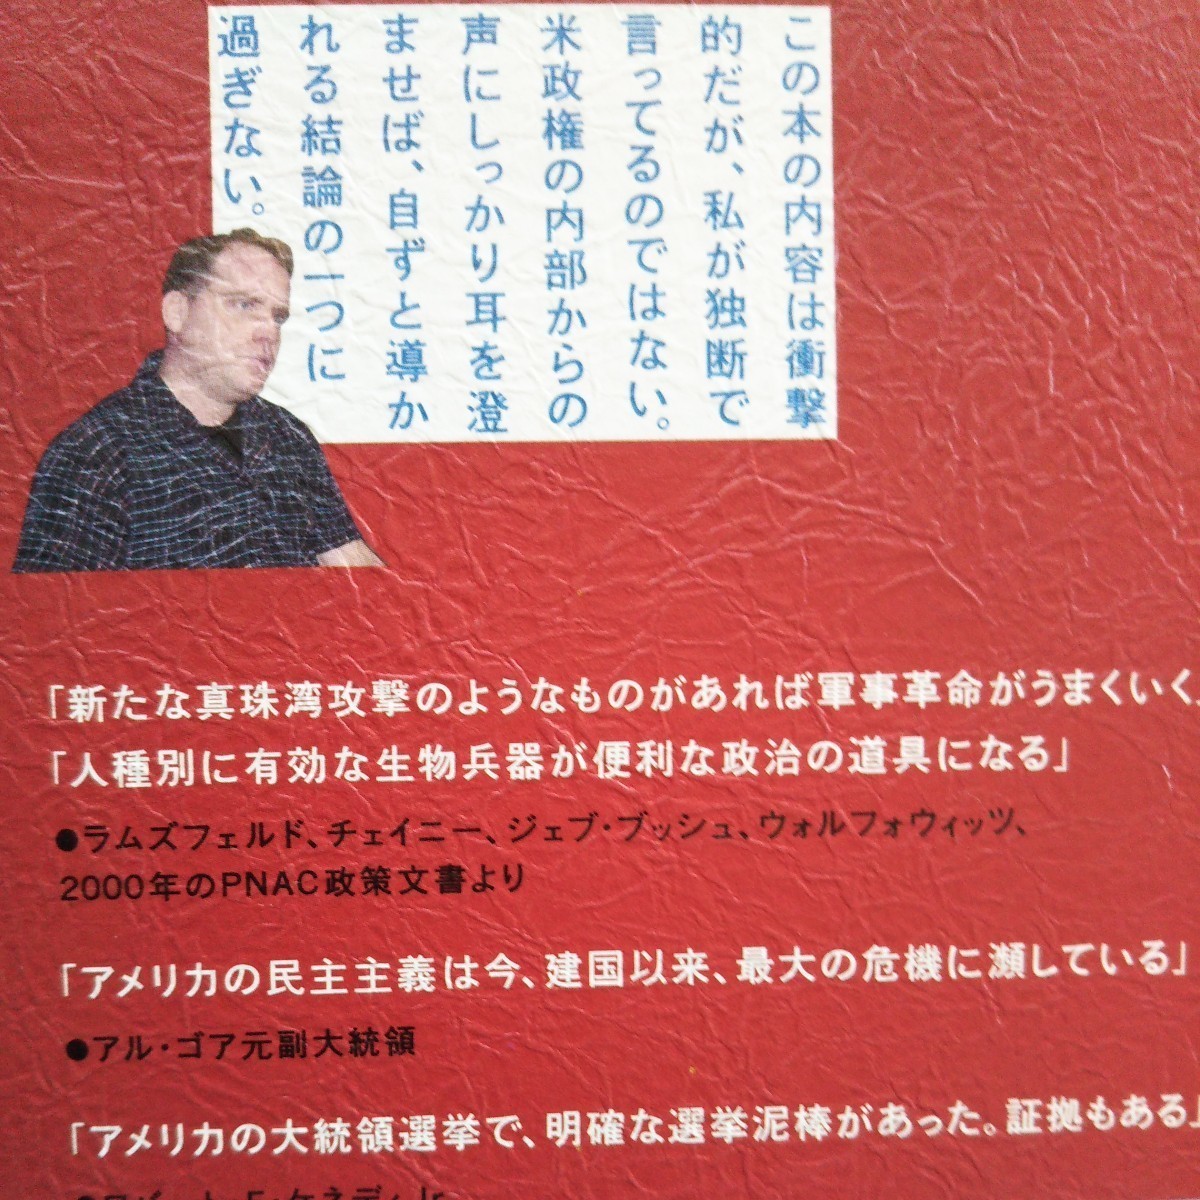 この本の内容は衝撃
的だが、私が独断で
言ってるのではない。
米政権の内部からの
声にしっかり耳を澄
ませば、自ずと導か
れる結論の一つに
過ぎない。
「新たな真珠湾攻撃のようなものがあれば軍事革命がうまくいく
「人種別に有効な生物兵器が便利な政治の道具になる」
●ラムズフェルド、チェイニー、ジェブ・ブッシュ、ウォルフォウィッツ、
2000年のPNAC政策文書より
「アメリカの民主主義は今、建国以来、最大の危機に瀕している」
●アル・ゴア元副大統領
「アメリカの大統領選挙で、明確な選挙泥棒があった。証拠もある」
●ロバート・F・ケネディJr.